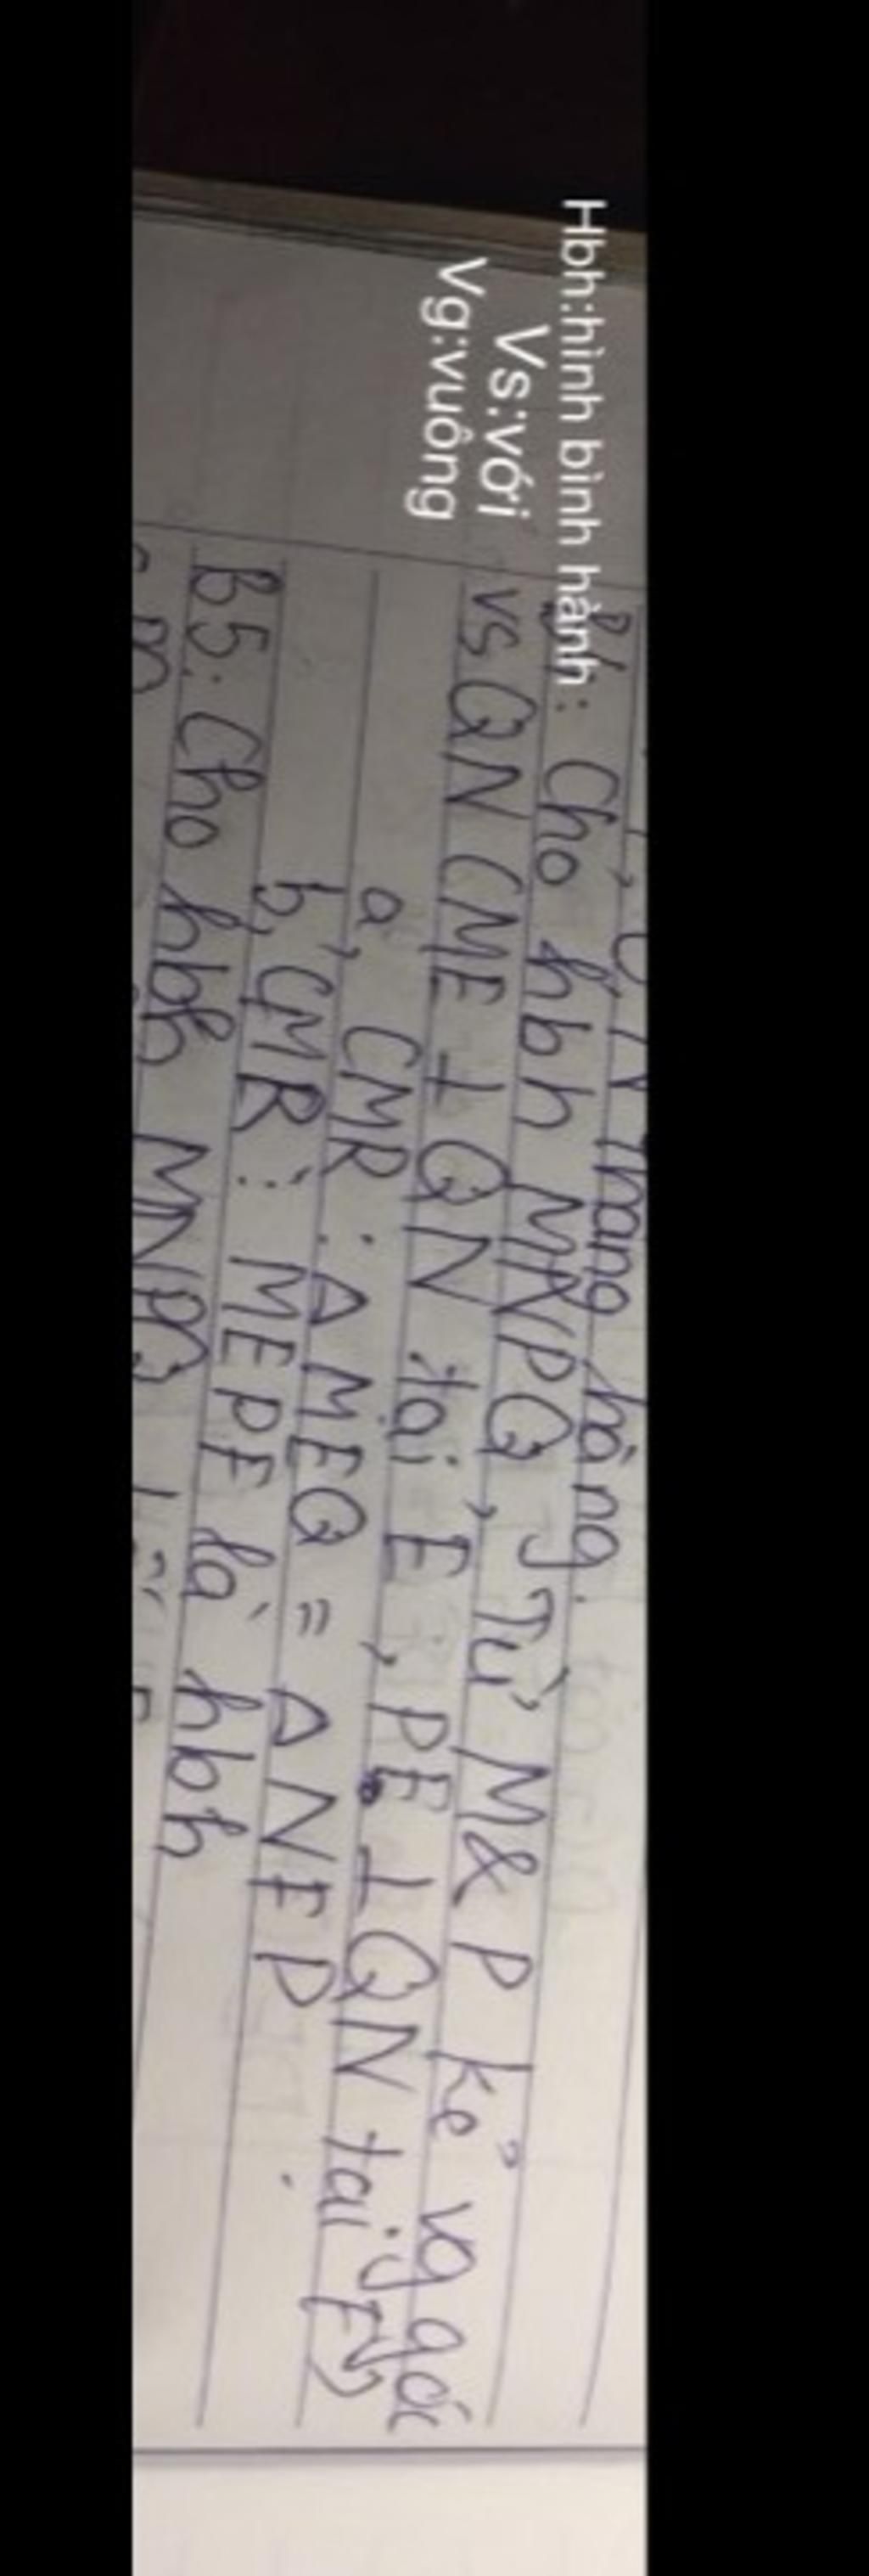 Hbh:hình bình hành
Vs:với
Vg:vuông
thẳng hàng.
B4: Cho hbh MNPQ, Từ M & P kẻ vg góc
vs QN (ME ⊥ QN tại E, PF ⊥ QN tại F)
a, CMR: Δ MEQ = Δ NFP
b, CMR: MEPF là hbh
B5: Cho hbh MNPQ